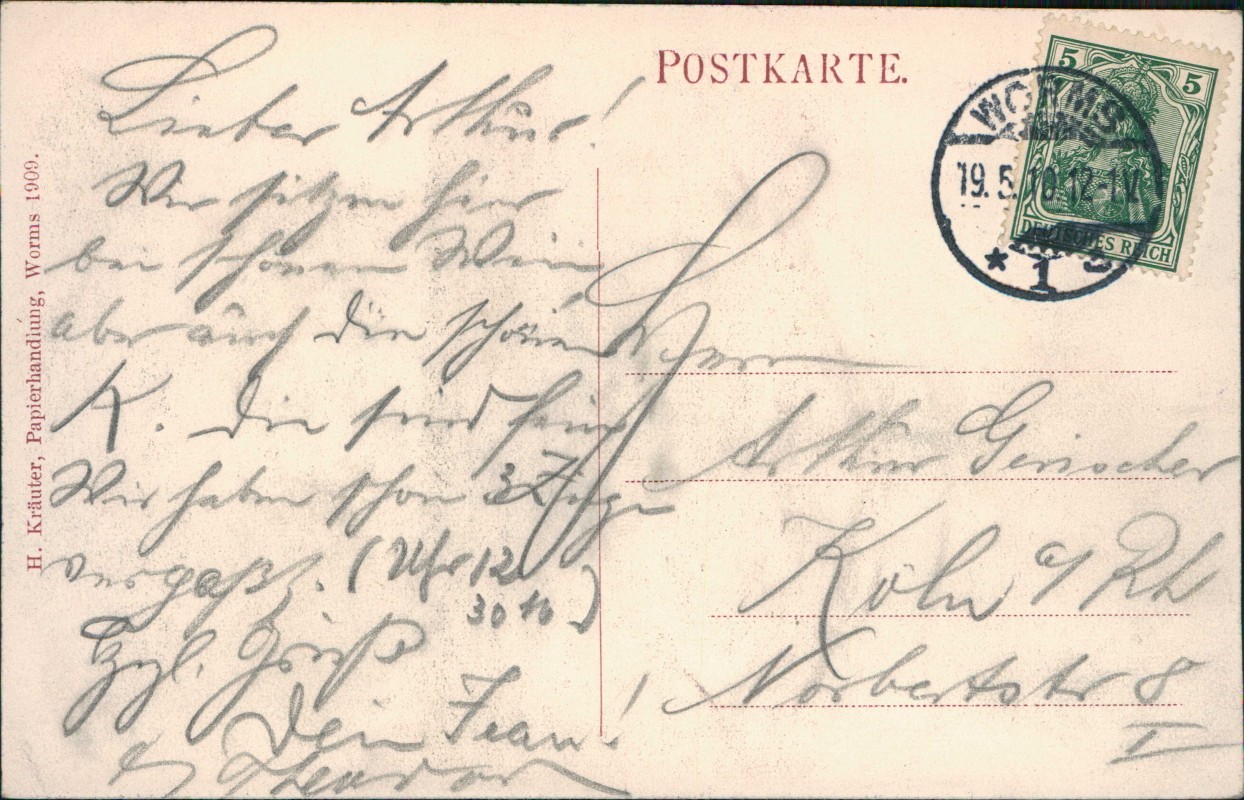 POSTKARTE.
5 5
DEUTSCHES REICH
WORMS
19.5.10.12-1V.
* 1
H. Kräuter, Papierhandlung, Worms 1909.
Lieber Arthur!
Wir sitzen hier
bei schönem Wein
aber auch die schönen
K. die sind fein
Wir haben schon 3 Züge
vergaßt. (Uhr 12
30 10)
Hzl. Grüße
Dein Jean!
Theodor
Herrn
Arthur Gerischer
Köln a/Rh
Norbertstr 8
I